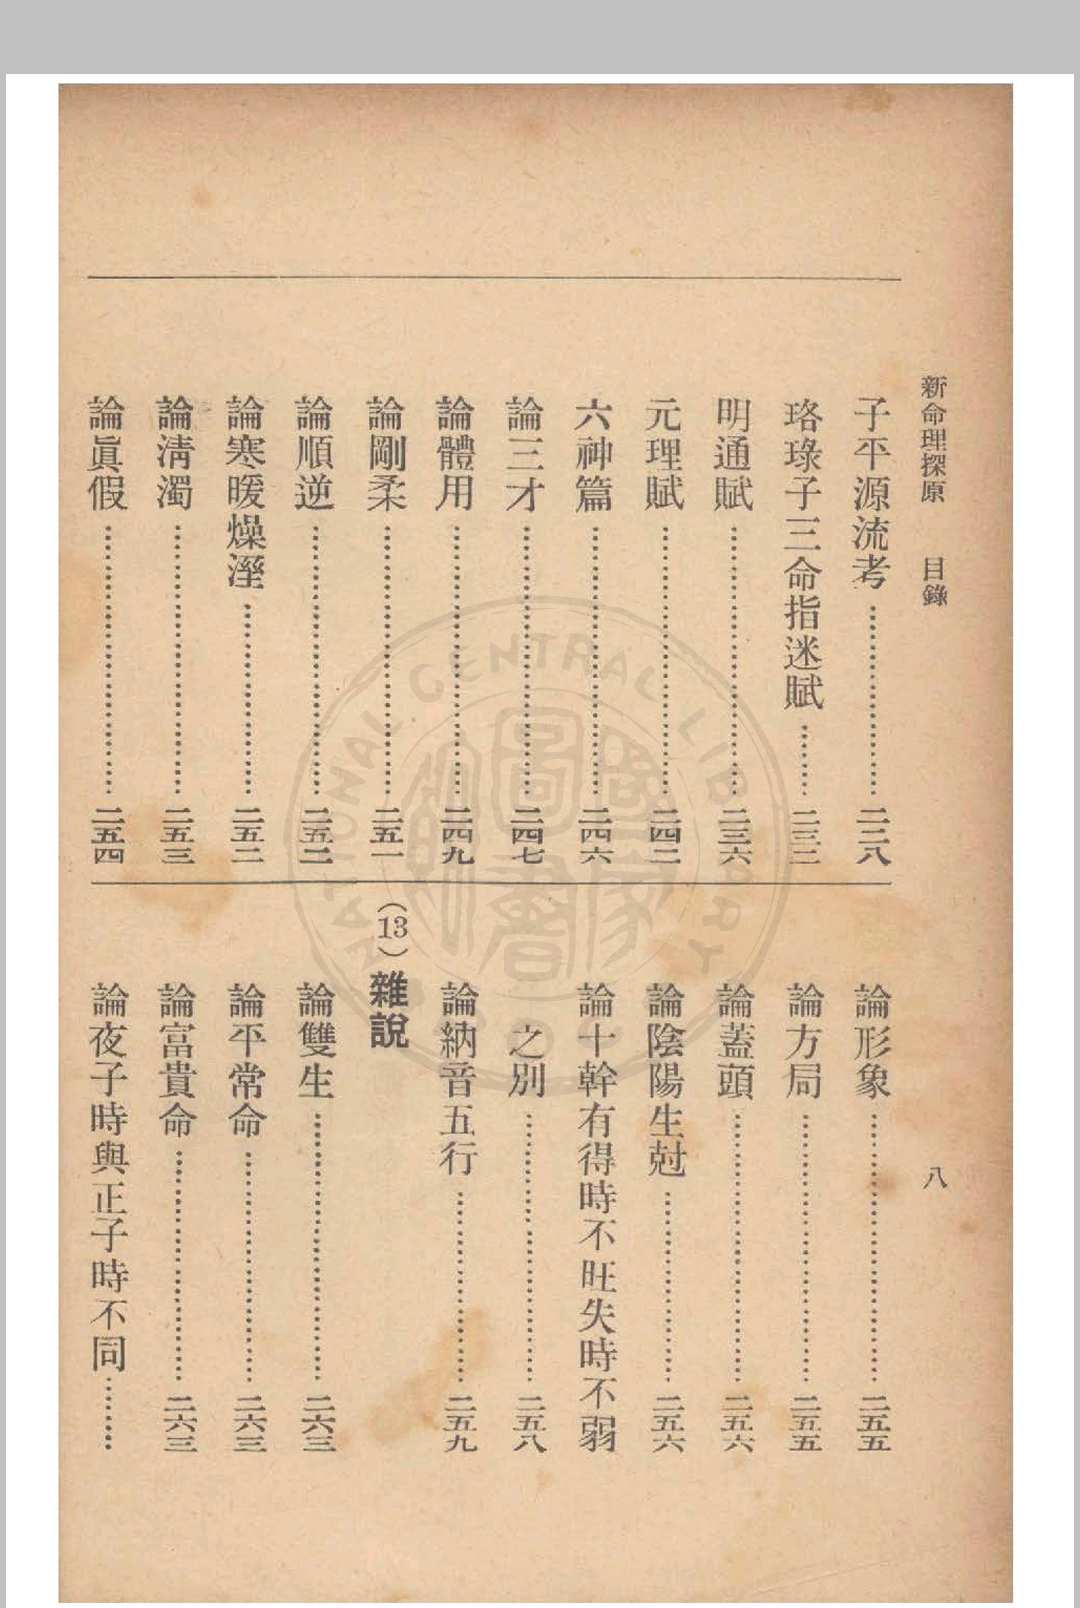 新命理探原 目錄 八
子平源流考…………二二八
珞琭子三命指迷賦……二三二
明通賦…………二三六
元理賦…………二四二
六神篇…………二四六
論三才…………二四七
論體用…………二四九
論剛柔…………二五一
論順逆…………二五二
論寒暖燥溼…………二五二
論清濁…………二五三
論眞假…………二五四
論形象…………二五五
論方局…………二五五
論蓋頭…………二五六
論陰陽生尅…………二五六
論十幹有得時不旺失時不弱
之別…………二五八
論納音五行…………二五九
（13）雜說
論雙生…………二六三
論平常命…………二六三
論富貴命…………二六三
論夜子時與正子時不同……
NATIONAL CENTRAL LIBRARY